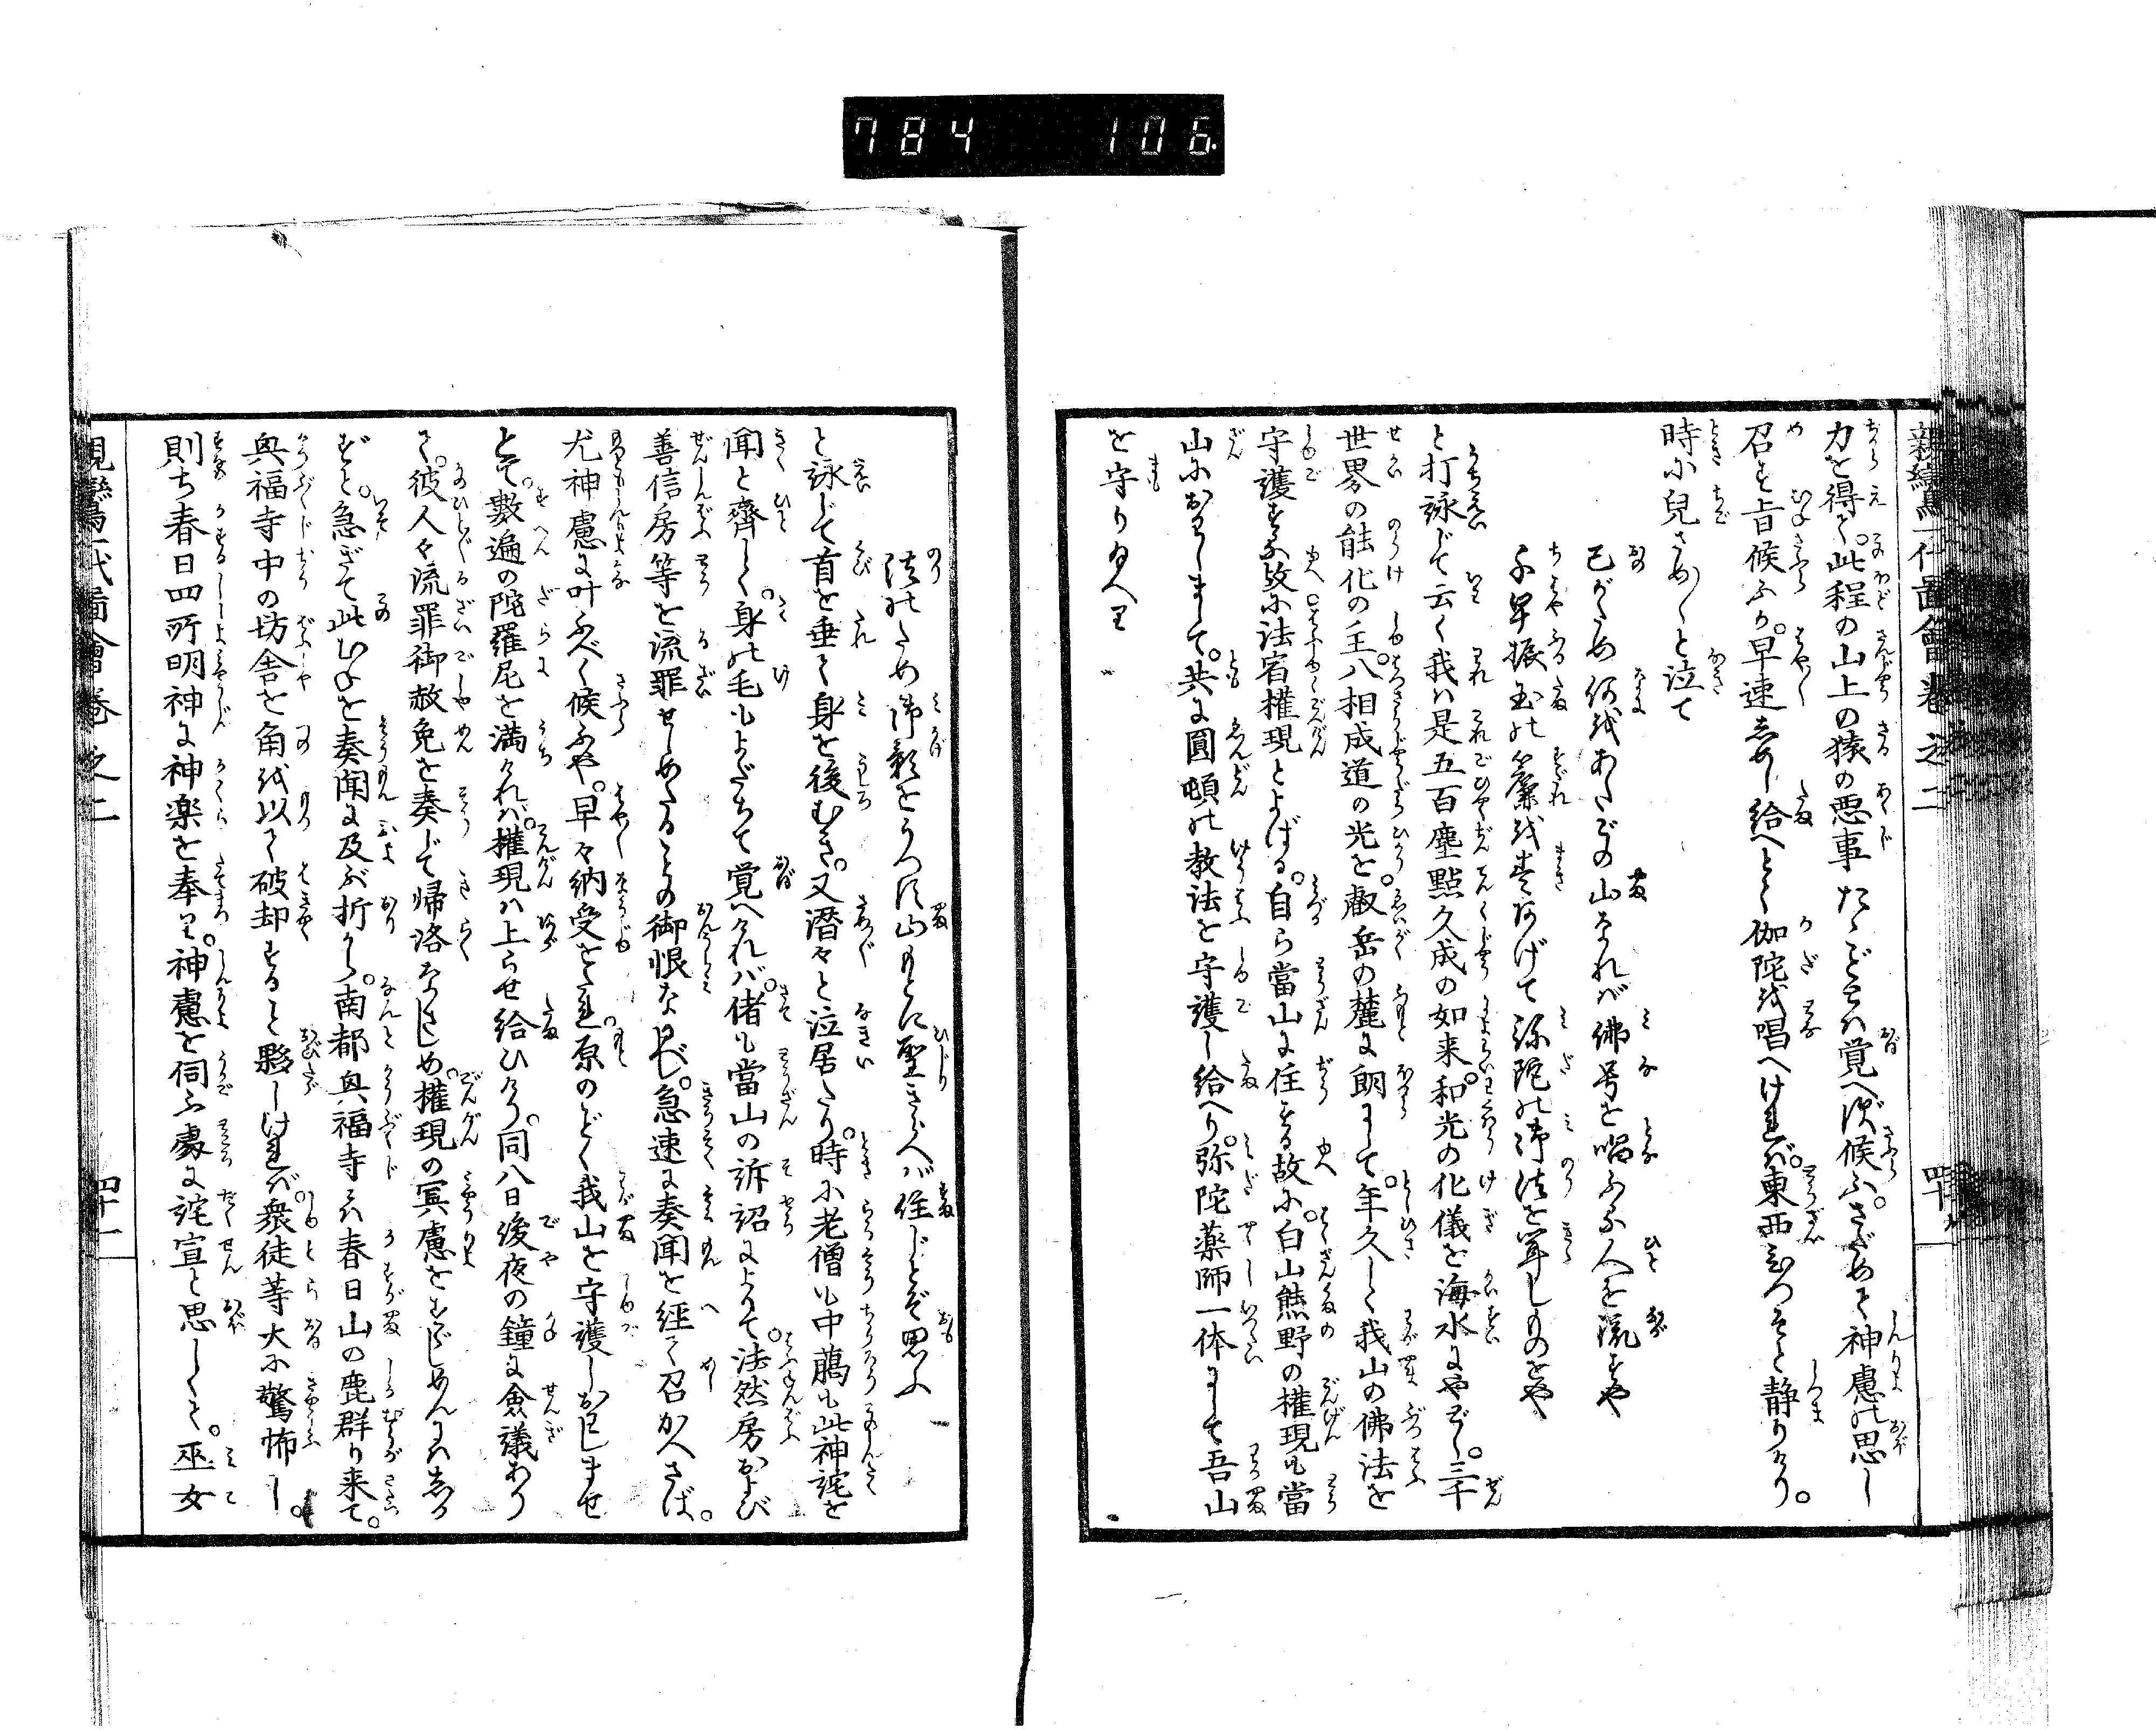 784 106
親鸞聖人一代圖會卷之二 四十
力を得て。此程の山上の猿の悪事たゞごとゝは覚へず候ふ。さだめて神慮に思し
召す旨候ふか。早速しめし給へとて伽陀を唱へければ。東西ひつそと静りけり。
時に兒さめ〴〵と泣て
己がため何をあたごの山なれば佛号を唱ふる人を流すや
千早振玉の簾をまきあげて弥陀の御法を聞しものをや
と打詠じて云く我は是五百塵點久成の如来。和光の化儀を海水にやどし。三千
世界の能化の主。八相成道の光を。叡岳の麓に朗にして。年久しく我山の佛法を
守護する故に法宿權現とよばる。自ら當山に住する故に。白山熊野の權現も當
山におはしまして。共に圓頓の教法を守護し給へり。弥陀薬師一体にして吾山
を守り給へり
法のため御影をうつす山もとに聖きらへば住じとぞ思ふ
と詠じて首を垂て身を後むき。又潜々と泣居たり。時に老僧も中﨟も此神詫を
聞と齊しく。身の毛もよだちて覚へければ。偖も當山の訴詔によりて。法然房および
善信房等を流罪せしめたることの御恨なれば。急速に奏聞を經て召かへさば。
尤神慮に叶ふべく候ふや。早々納受をたれ。原のごとく我山を守護しおはしませ
とて。數遍の陀羅尼を満ければ。權現は上らせ給ひけり。同八日後夜の鐘に僉議あり
て。彼人々流罪御赦免を奏じて帰洛なさしめ。權現の冥慮をすゞしめんにはしか
ずと。急ぎて此むねを奏聞に及ぶ折から。南都興福寺には春日山の鹿群り来て。
興福寺中の坊舎を角を以て破却すること夥しければ。衆徒等大に驚怖し。
則ち春日四所明神に神楽を奉り。神慮を伺ふ處に詫宣と思しくて。巫女
親鸞聖人一代圖會卷之二 四十一